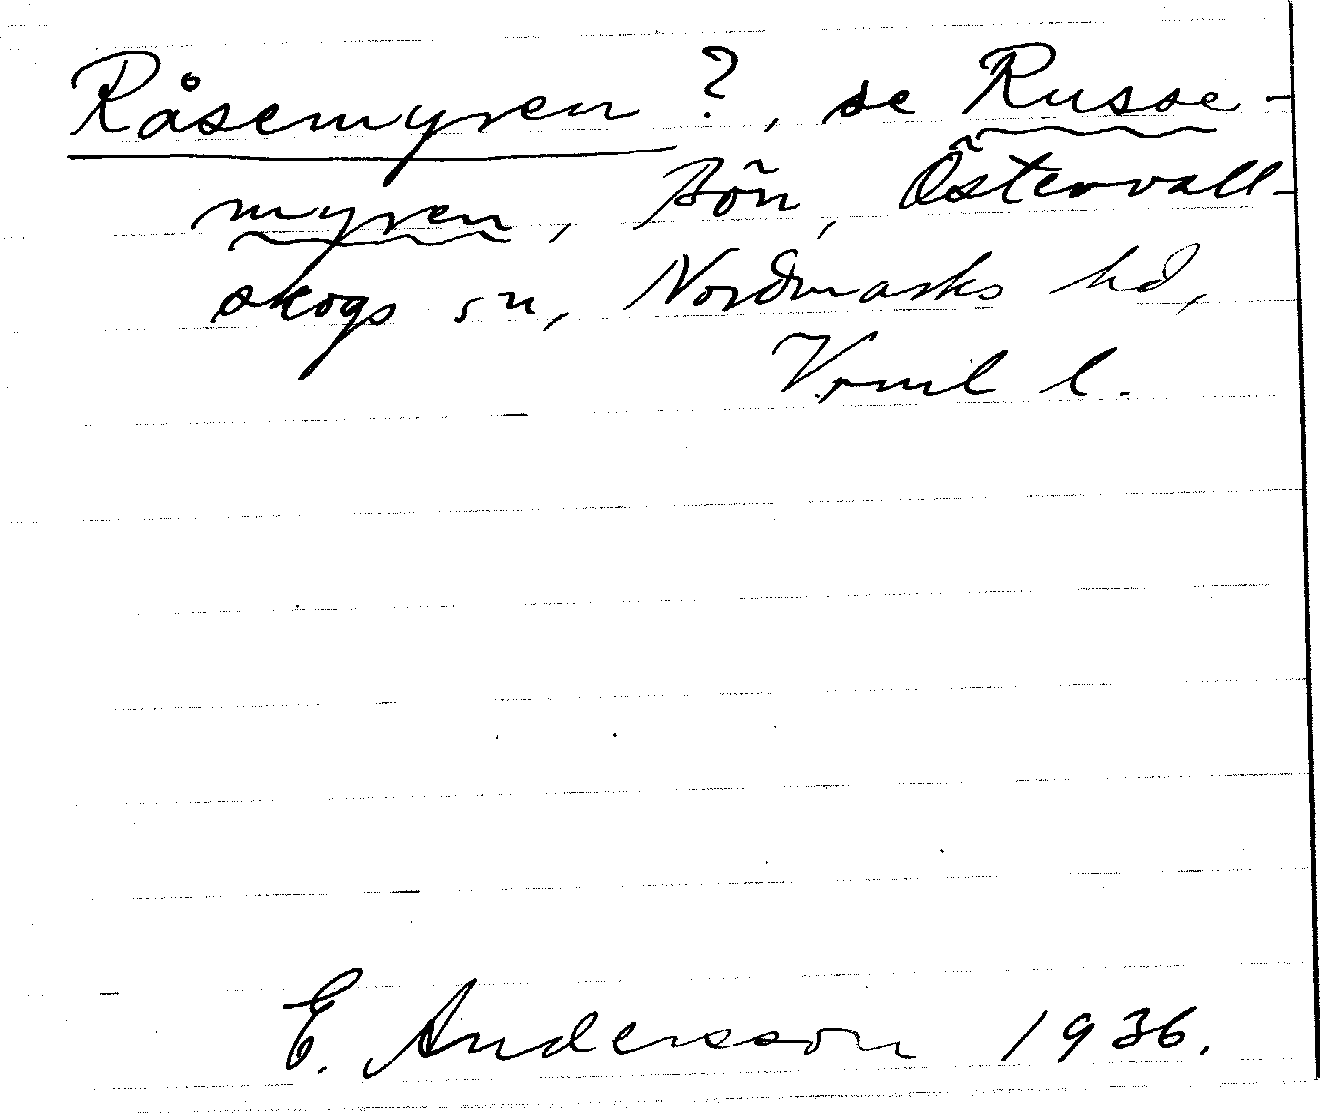 Råsemyren ?, se Russe-
myren, Bön, Östervall-
skogs sn, Nordmarks hd,
Vrml l.
E. Andersson 1936.